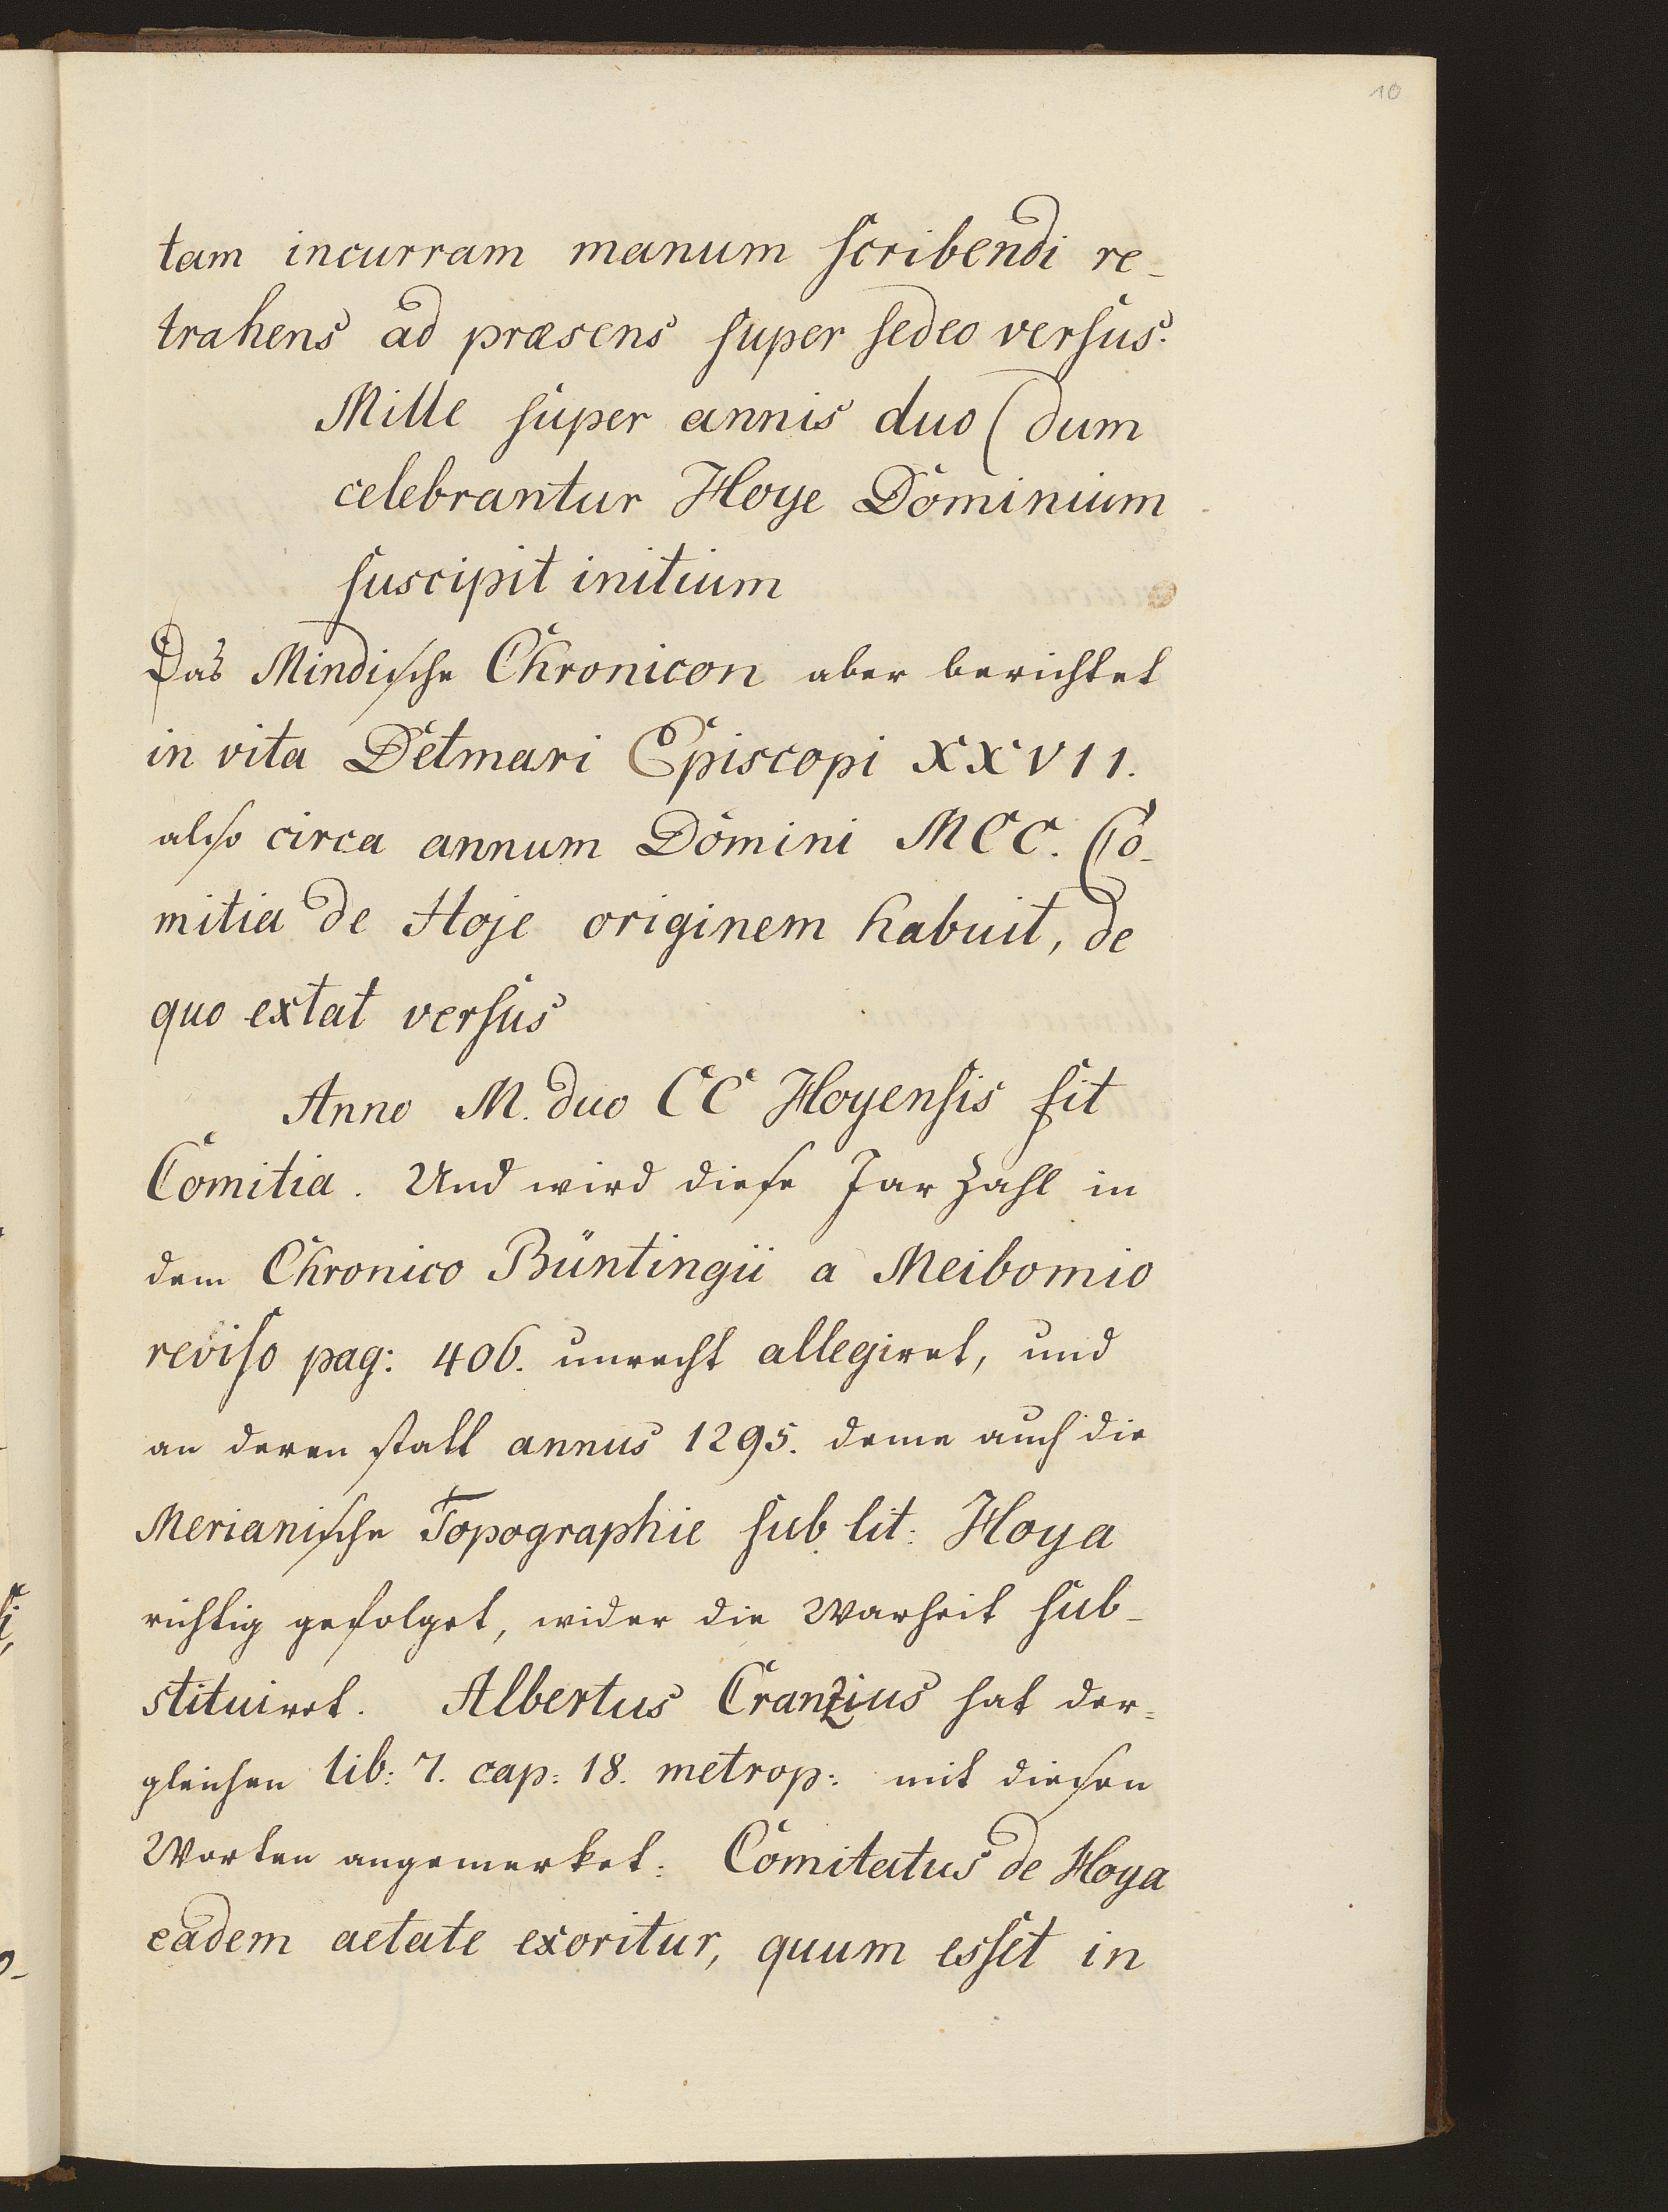 10
tam incurram manum scribendi re-
trahens ad præsens super sedeo versus.
Mille super annis duo C dum
celebrantur Hoye Dominium
suscipit initium
Das Mindische Chronicon aber berichtet
in vita Detmari Episcopi XXVII.
also circa annum Domini MCC. Co-
mitia de Hoje originem habuit, de
quo extat versus
Anno M. duo CC Hoyensis fit
Comitia. Und wird diese Jar Zahl in
dem Chronico Büntingii a Meibomio
reviso pag: 406. unrecht allegiret, und
an deren statt annus 1295. deme auch die
Merianische Topographie sub lit: Hoya
richtig gefolget, wider die Warheit sub-
stituiret. Albertus Cranzius hat der=
gleichen lib: 7. cap: 18. metrop: mit diesen
Worten angemerket: Comitatus de Hoya
eadem aetate exoritur, quum esset in